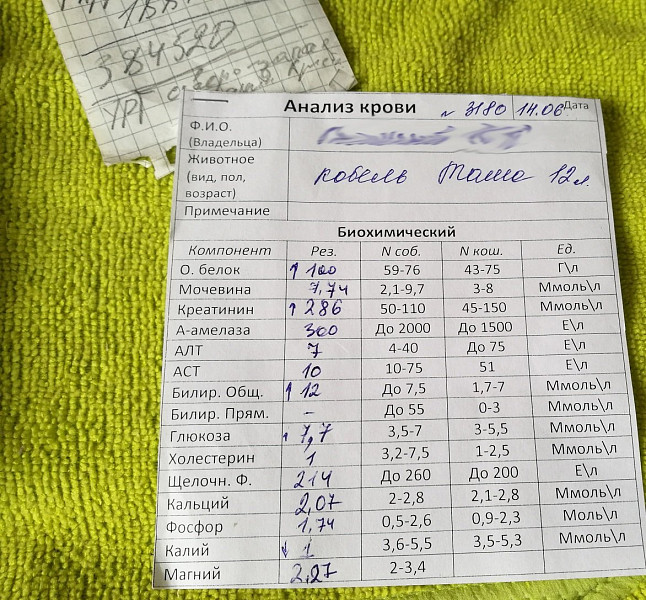 188
38452D
УРГ
Анализ крови № 3180 14.06. Дата
Ф.И.О.
(Владельца)
Животное
(вид, пол,
возраст)
кобель Таша 12л.
Примечание
Биохимический
Компонент Рез. N соб. N кош. Ед.
О. белок ↑ 100 59-76 43-75 Г\л
Мочевина 7,74 2,1-9,7 3-8 Ммоль\л
Креатинин ↑ 286 50-110 45-150 Ммоль\л
А-амелаза 300 До 2000 До 1500 Е\л
АЛТ 7 4-40 До 75 Е\л
АСТ 10 10-75 51 Е\л
Билир. Общ. ↑ 12 До 7,5 1,7-7 Ммоль\л
Билир. Прям. – До 55 0-3 Ммоль\л
Глюкоза ↑ 7,7 3,5-7 3-5,5 Ммоль\л
Холестерин 1 3,2-7,5 1-2,5 Ммоль\л
Щелочн. Ф. 214 До 260 До 200 Е\л
Кальций 2,07 2-2,8 2,1-2,8 Ммоль\л
Фосфор 1,74 0,5-2,6 0,9-2,3 Моль\л
Калий ↓ 1 3,6-5,5 3,5-5,3 Ммоль\л
Магний 2,27 2-3,4